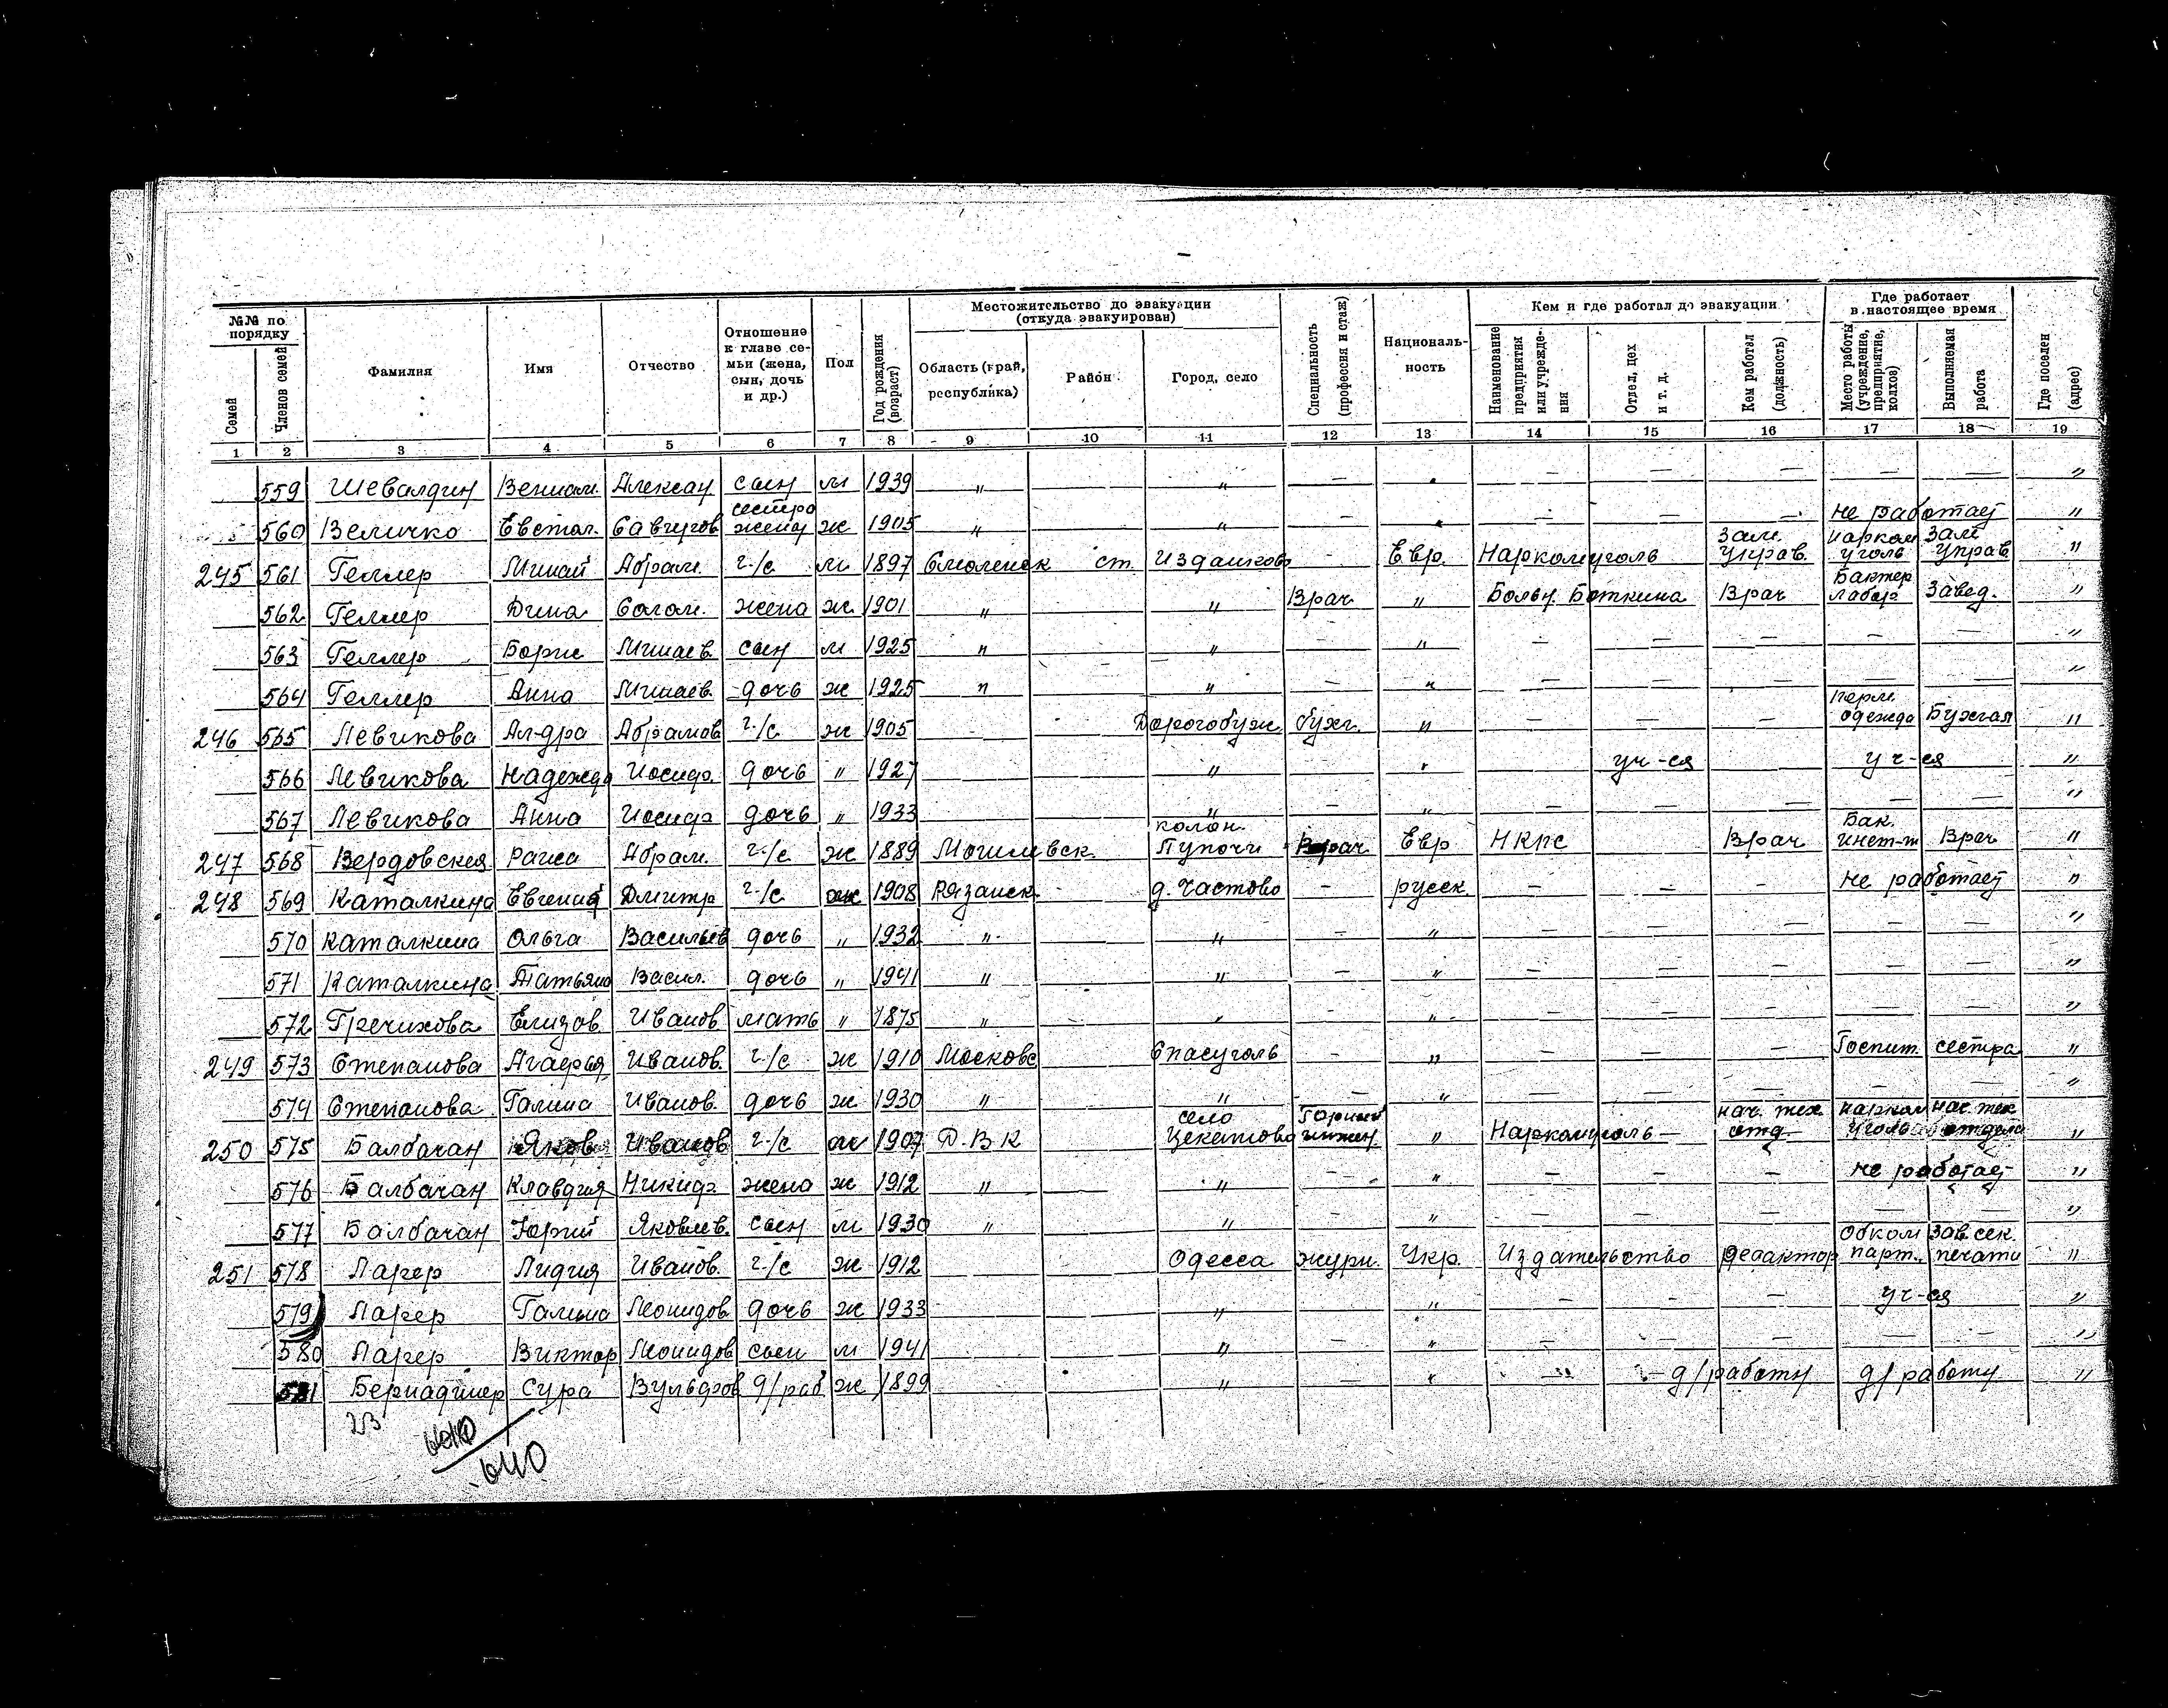 №№ по порядку
Семей
Членов семей
Фамилия
Имя
Отчество
Отношение к главе семьи (жена, сын, дочь и др.)
Пол
Год рождения (возраст)
Местожительство до эвакуации (откуда эвакуирован)
Область (край, республика)
Район
Город, село
Специальность (профессия и стаж)
Националь-ность
Кем и где работал до эвакуации
Наименование предприятия или учрежде-ния
Отдел, цех и т. д.
Кем работал (должность)
Где работает в настоящее время
Место работы (учреждение, предприятие, колхоз)
Выполняемая работа
Где поселен (адрес)
1 2 3 4 5 6 7 8 9 10 11 12 13 14 15 16 17 18 19
559 Шевалдин Вениам. Алексан сын м 1939 " " — " — — — — — "
560 Величко Евстол. Савчугов сестра жены ж 1905 " " — " — — — не работает "
245 561 Геллер Минай Абрам. г/с м 1897 Смоленск ст. Издешково - Евр. Наркомуголь Зам. Управ. нарком уголь Зам Управ "
562 Геллер Дина Солом. жена ж 1901 " " Врач " Больн. Боткина Врач Бактер лабор Завед. "
563 Геллер Борис Минаев. сын м 1925 " " — " — — — — — "
564 Геллер Анна Минаев. дочь ж 1925 " " — " — — — — — "
246 565 Левикова Ал-дра Абрамов г/с ж 1905 Дорогобуж бухг. " — — — перм. одежда Бухгал "
566 Левикова Надежда Иосиф. дочь " 1927 " " уч-ся уч-ся "
567 Левикова Анна Иосиф дочь " 1933 " — " — — — — — "
247 568 Вердовская Раиса Абрам. г/с ж 1889 Могилевск. колон. Пупочи Врач Евр НКПС Врач Бак. инст-т Врач "
248 569 Каталкина Евгения Дмитр г/с ж 1908 Рязанск. д. Частово — русск. — — - не работает "
570 Каталкина Ольга Васильев дочь " 1932 " " — " — — — — — "
571 Каталкина Татьяна Васил. дочь " 1941 " " — " — — — — — "
572 Гречихова Елизов Иванов мать " 1875 " " - " — — — — — "
249 573 Степанова Агафья Иванов. г/с ж 1910 Московс Спасуголь - " — — — Госпит. сестра "
574 Степанова Галина Иванов. дочь ж 1930 " " — " — — — - — "
250 575 Балбачан Яков Иванов г/с м 1907 Д.В.К село Цекатово Горный инжен. " Наркомуголь — нач. тех отд. нарком уголь нач. тех отдела "
576 Балбачан Клавдия Никиф. жена ж 1912 " " — " — — — не работает "
577 Балбачан Юрий Яковлев. сын м 1930 " " — " — — — — — "
251 578 Ларер Лидия Иванов. г/с ж 1912 Одесса журн. Укр. Издательство редактор Обком парт. Зав. сек. печати "
579 Ларер Галина Леонидов дочь ж 1933 " " — - — уч-ся "
580 Ларер Виктор Леонидов сын м 1941 " — " — — — — — "
581 Сура Вульфов д/раб ж 1899 " — " — д/работн д/работн "
23
640